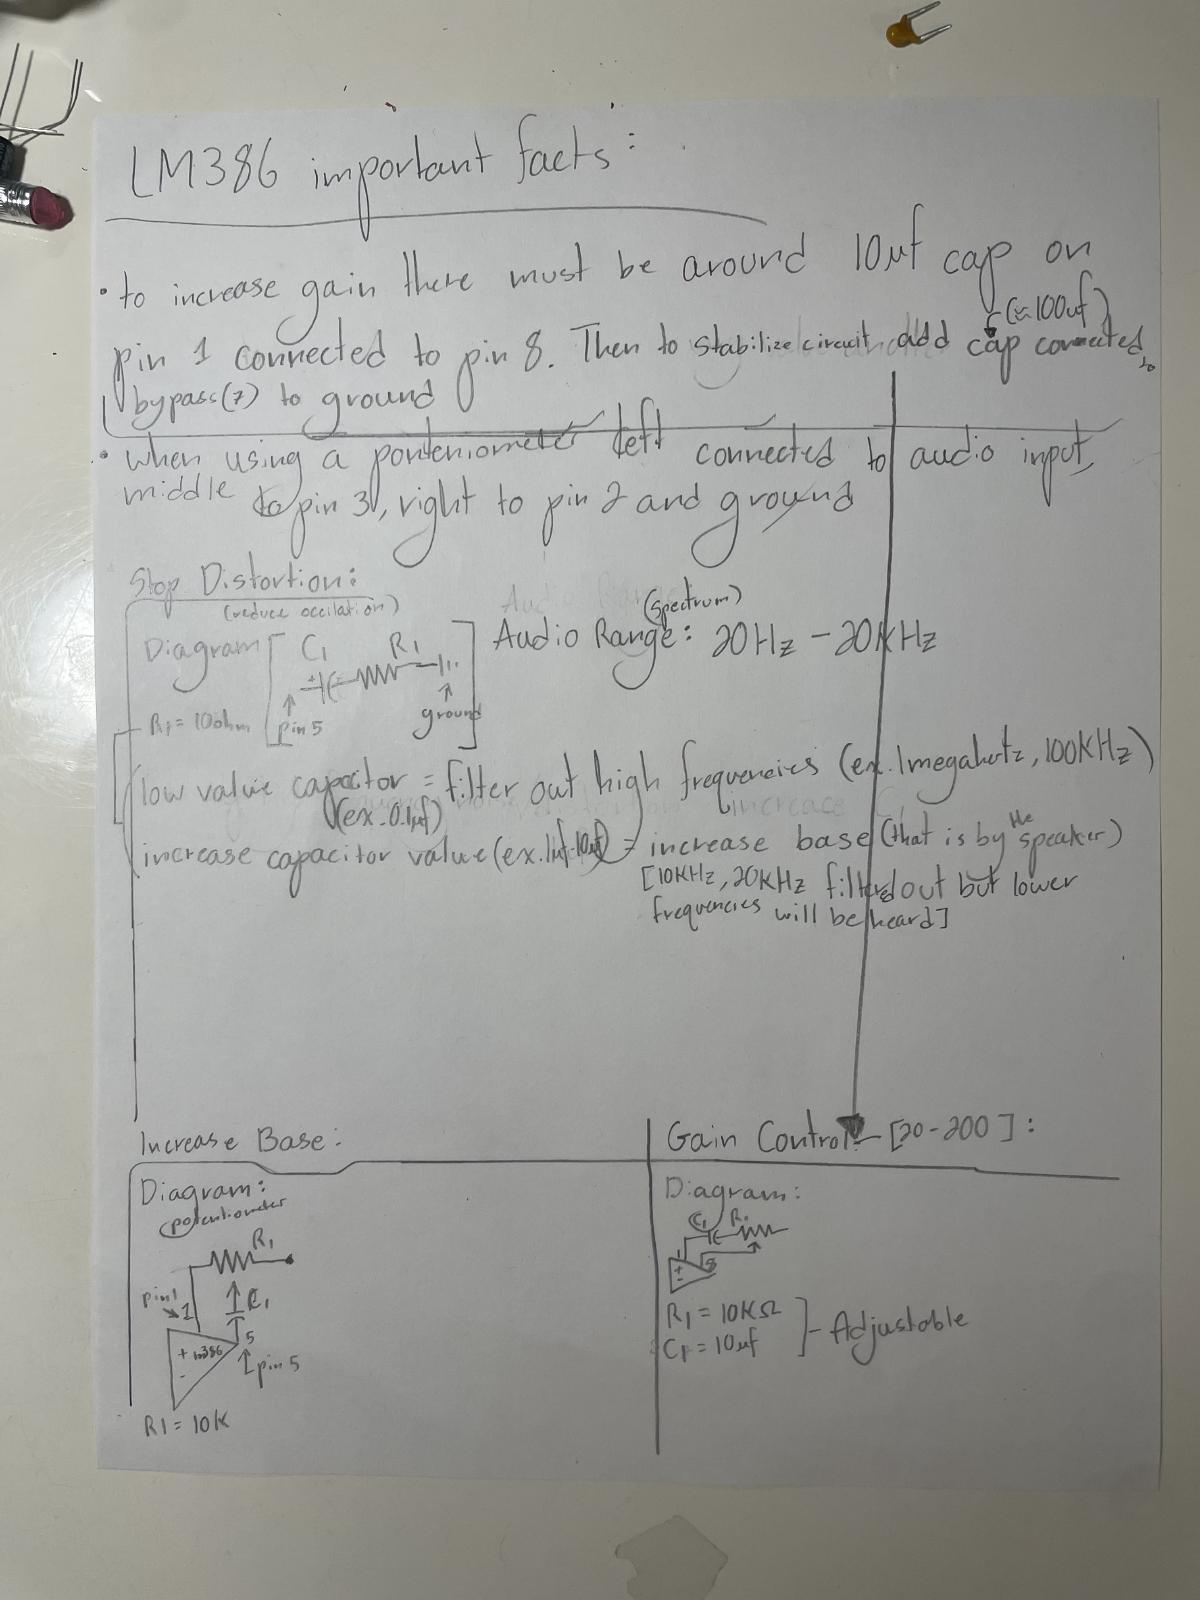 LM386 important facts:
• to increase gain there must be around 10µf cap on
(≈100uf)
pin 1 connected to pin 8. Then to stabilize circuit add cap connected to
bypass(7) to ground
• when using a ponteniometer left connected to audio input,
middle to pin 3, right to pin 2 and ground
Stop Distortion:
(reduce occilation)
Diagram [ C1 R1 ]
pin 5 ground
R1 = 10ohm
(spectrum)
Audio Range: 20Hz - 20KHz
low value capacitor = filter out high frequencies (ex. 1megahertz, 100KHz)
(ex. 0.1µf)
increase capacitor value (ex. 1µf-10µf) = increase base (that is by the speaker)
[10KHz, 20KHz filtered out but lower
frequencies will be heard]
Increase Base:
Diagram:
(potentiometer
R1
pin1
1
C1
+ lm386
-
5
pin 5
R1 = 10K
Gain Control - [20-200]:
Diagram:
C1 R1
1
8
+
-
R1 = 10KΩ
C1 = 10µf
] - Adjustable